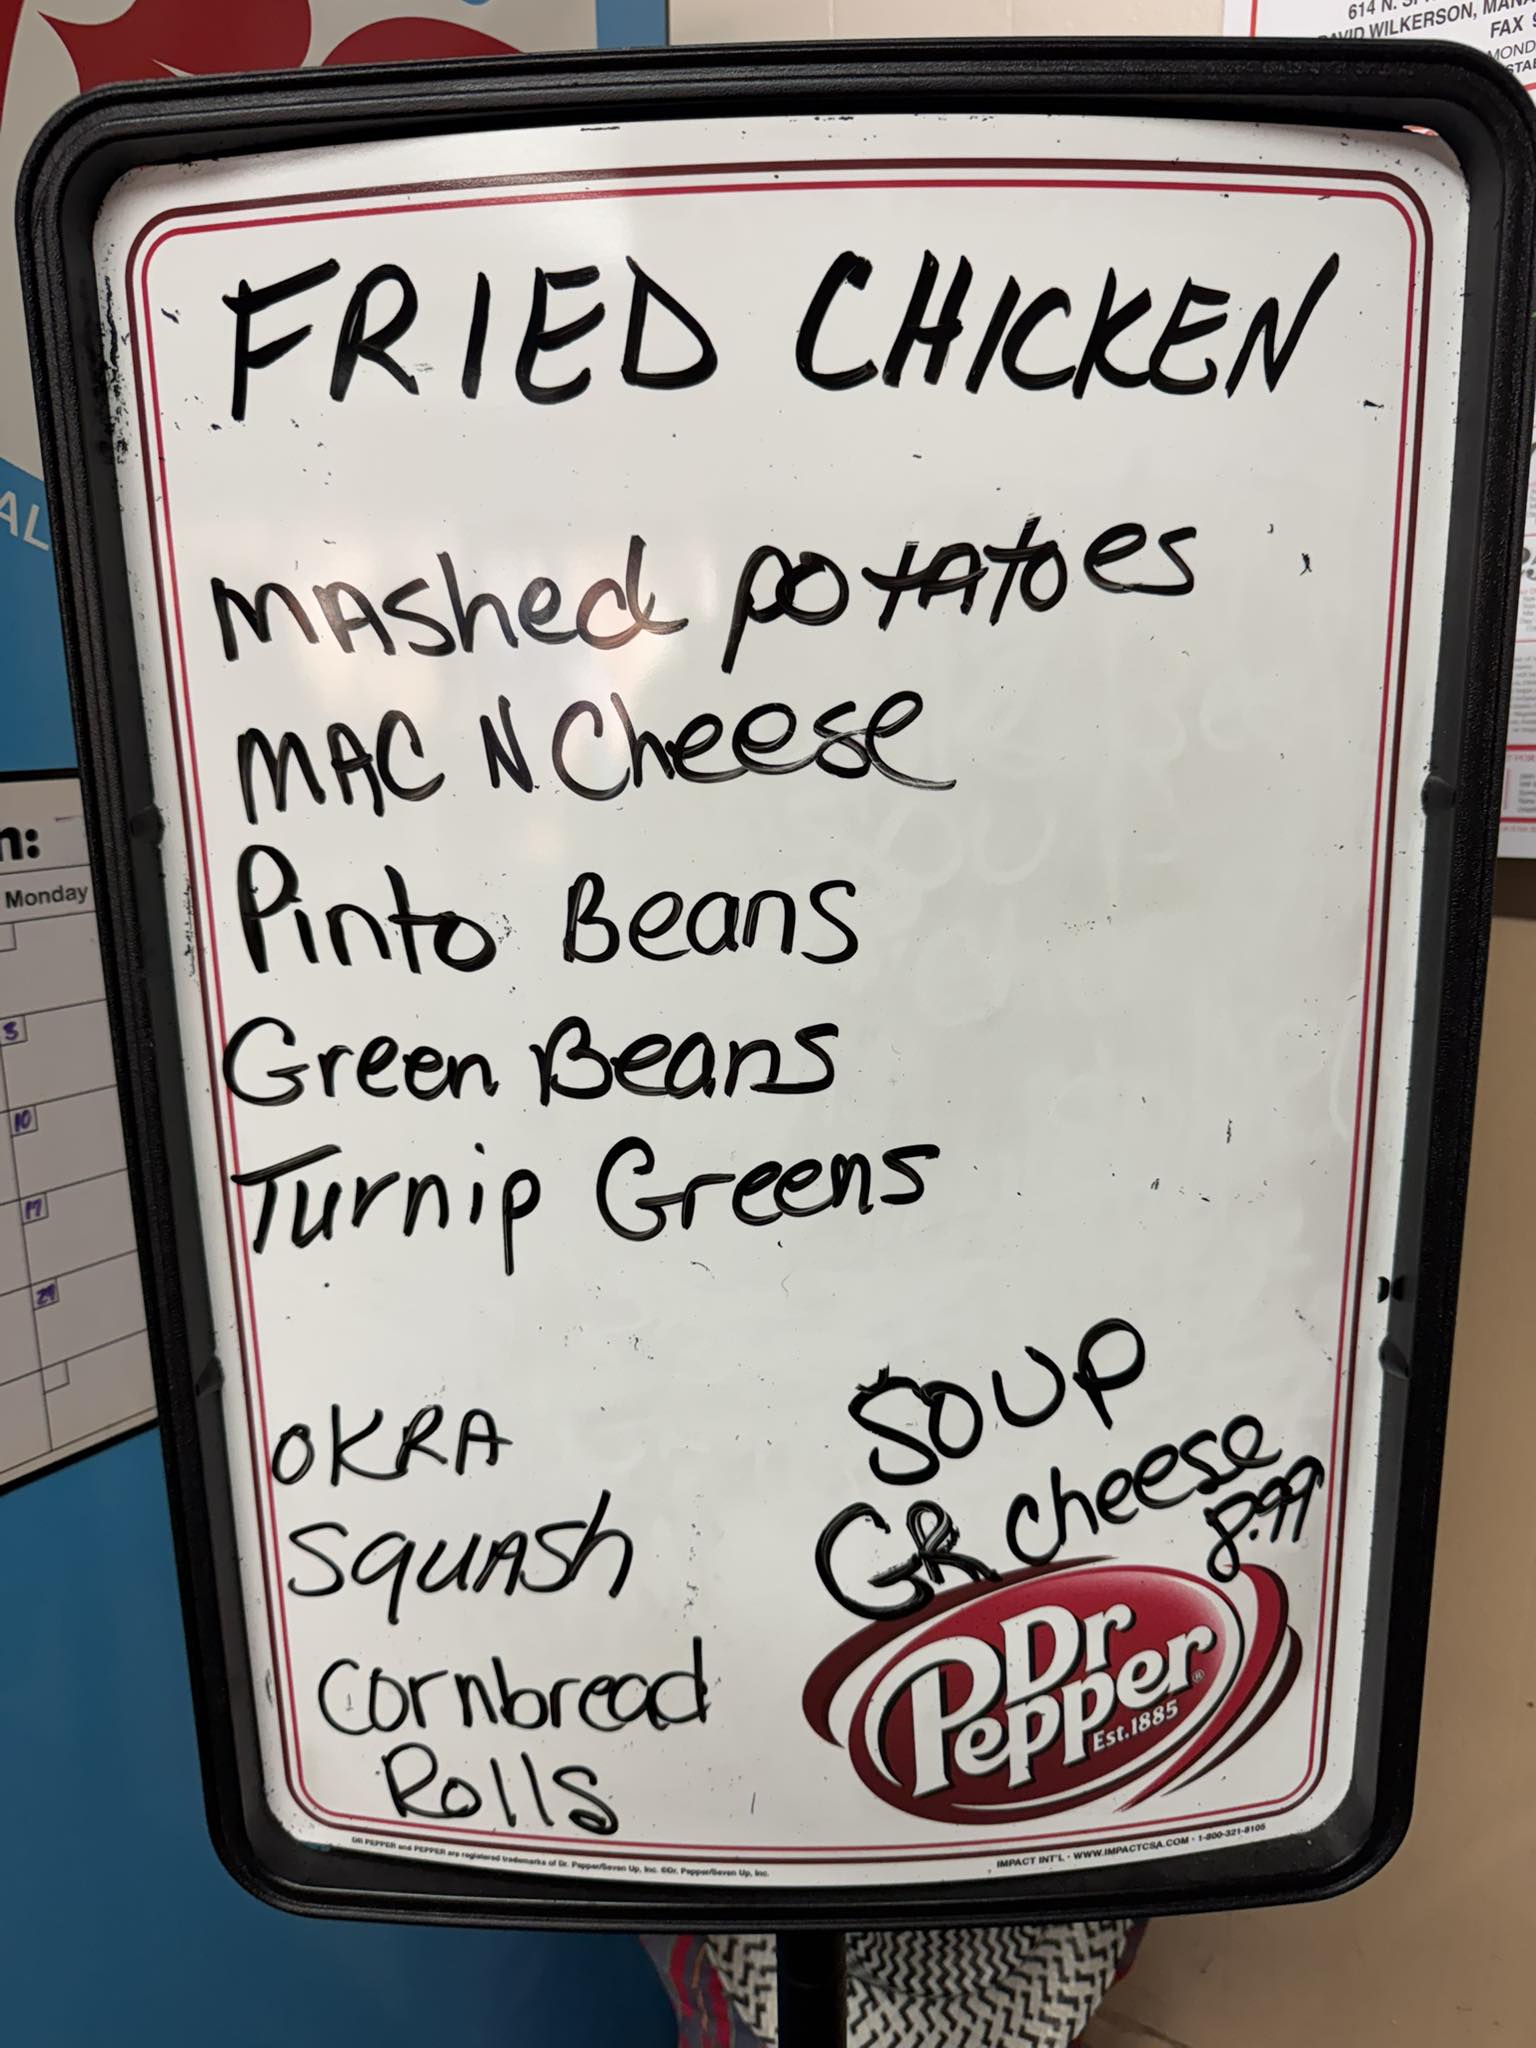 614 N. SP
DAVID WILKERSON, MANA
FAX
MOND
STAB
FRIED CHICKEN
MAShed potatoes
MAC N Cheese
Pinto Beans
Green Beans
Turnip Greens
OKRA
SquASh
Cornbread
Rolls
SOUP
GR cheese
8.99
Dr
Pepper®
Est.1885
DR PEPPER and PEPPER are registered trademarks of Dr. Pepper/Seven Up, Inc. ©Dr. Pepper/Seven Up, Inc.
IMPACT INT'L · WWW.IMPACTCSA.COM · 1-800-321-8105
AL
n:
Monday
3
10
17
24